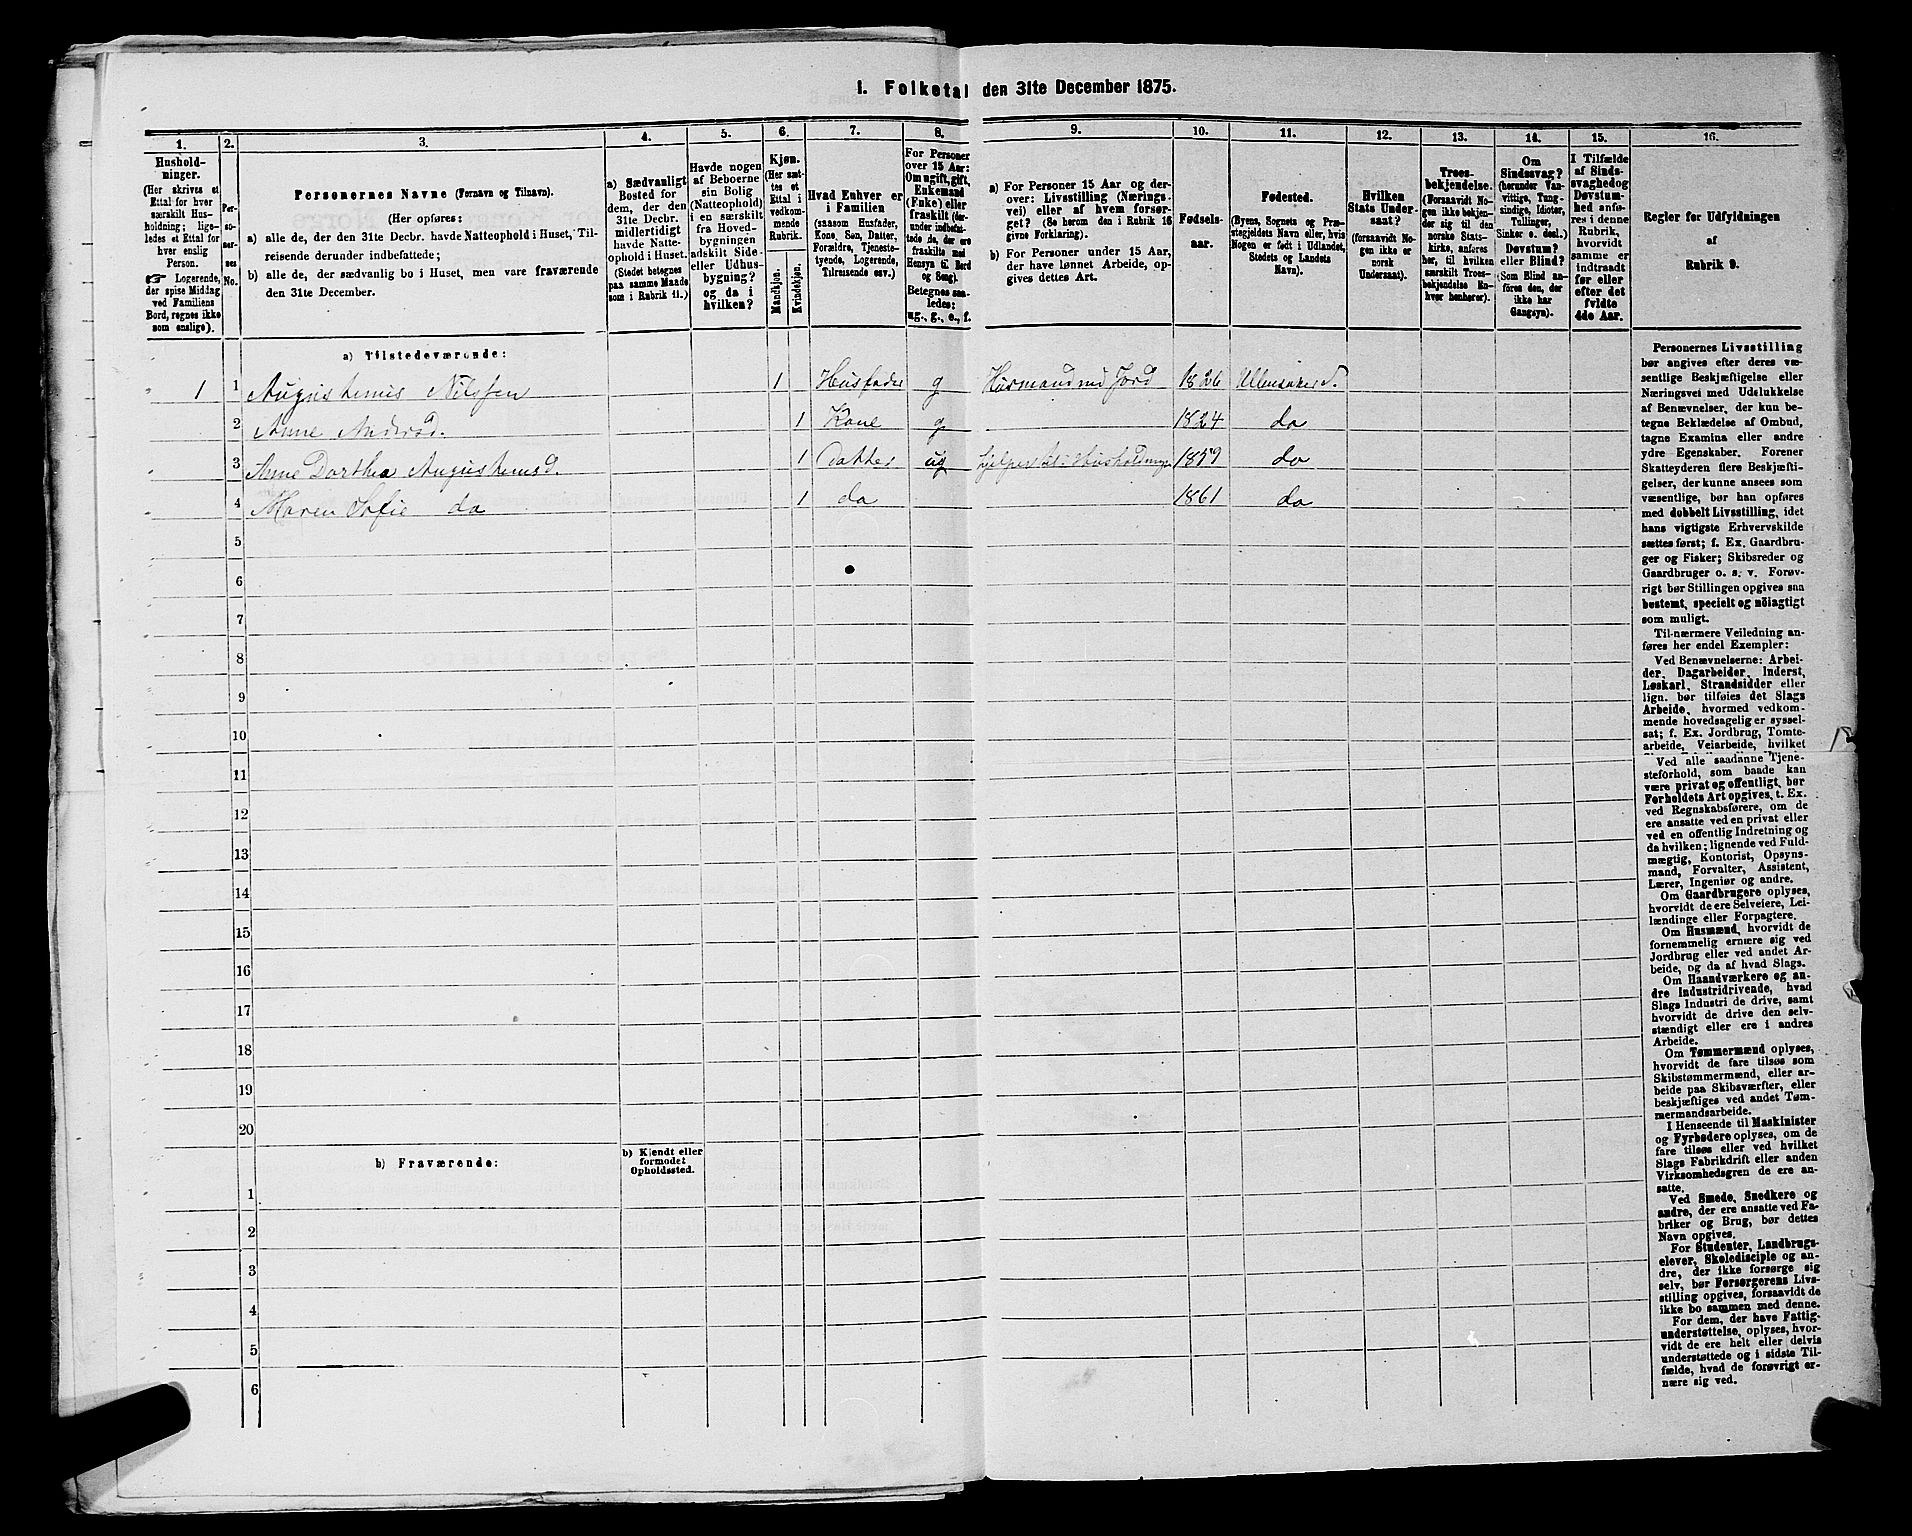 I. Folketal den 31te December 1875.
1. 2. 3. 4. 5. 6. 7. 8. 9. 10. 11. 12. 13. 14. 15. 16.
Hushold-
ninger.
(Her skrives et
Ettal for hver
særskilt Hus-
holdning; lige-
ledes et Ettal for
hver enslig
Person.
☞ Logerende,
der spise Middag
ved Familiens
Bord, regnes ikke
som enslige).
Per-
so-
ner-
nes
No.
Personernes Navne (Fornavn og Tilnavn).
(Her opføres:
a) alle de, der den 31te Decbr. havde Natteophold i Huset, Til-
reisende derunder indbefattede;
b) alle de, der sædvanlig bo i Huset, men vare fraværende
den 31te December.
a) Sædvanligt
Bosted for
dem, der den
31te Decbr.
midlertidigt
havde Natte-
ophold i Huset.
(Stedet betegnes
paa samme Maade
som i Rubrik 11.)
Havde nogen
af Beboerne
sin Bolig
(Natteophold)
i en særskilt
fra Hoved-
bygningen
adskilt Side-
eller Udhus-
bygning?
og da i
hvilken?
Kjøn.
(Her sæt-
tes et
Ettal i
vedkom-
mende
Rubrik.
Mandkjøn.
Kvindekjøn.
Hvad Enhver er
i Familien
(saasom Husfader,
Kone, Søn, Datter,
Forældre, Tjeneste-
tyende, Logerende,
Tilreisende osv.)
For Personer
over 15 Aar:
Om ugift, gift,
Enkemand
(Enke) eller
fraskilt (der-
under indbefat-
tede de, der ere
fraskilte med
Hensyn til Bord
og Seng).
Betegnes saa-
ledes:
ug., g., e., f.
a) For Personer 15 Aar og der-
over: Livsstilling (Nærings-
vei) eller af hvem forsør-
get? (Se herom den i Rubrik 16
givne Forklaring).
b) For Personer under 15 Aar,
der have lønnet Arbeide, op-
gives dettes Art.
Fødsels-
aar.
Fødested.
(Byens, Sognets og Præ-
stegjeldets Navn eller, hvis
Nogen er født i Udlandet,
Stedets og Landets
Navn).
Hvilken
Stats Under-
saat?
(forsaavidt No-
gen ikke er
norsk
Undersaat).
Troes-
bekjendelse.
(Forsaavidt No-
gen ikke bekjen-
der sig til den
norske Stats-
kirke, anføres
her, til hvilken
særskilt Troes-
bekjendelse En-
hver henhører).
Om
Sindssvag?
(herunder Van-
vittige, Tung-
sindige, Idioter,
Tullinger,
Sinker o. desl.).
Døvstum?
eller Blind?
(Som Blind an-
føres den, der
ikke har
Gangsyn).
I Tilfælde
af Sinds-
svaghed og
Døvstum-
hed anfø-
res i denne
Rubrik,
hvorvidt
samme er
indtraadt
før eller
efter det
fyldte
4de Aar.
Regler for Udfyldningen
af
Rubrik 9.
a) Tilstedeværende:
1 1 Augustinus Nilssen 1 Husfader g Husmand m Jord 1826 Ullensaker S.
2 Anne Andersd. 1 Kone g 1824 do
3 Anne Dorthea Augustinusd. 1 Datter ug hjelper til i Husholdningen 1859 do
4 Maren Sofie do 1 do 1861 do
5
6
7
8
9
10
11
12
13
14
15
16
17
18
19
20
b) Fraværende:
b) Kjendt eller
formodet
Opholdssted.
1
2
3
4
5
6
Personernes Livsstilling
bør angives efter deres væ-
sentlige Beskjæftigelse eller
Næringsvei med Udelukkelse
af Benævnelser, der kun be-
tegne Beklædelse af Ombud,
tagne Examina eller andre
ydre Egenskaber. Forener
Skatteyderen flere Beskjæfti-
gelser, der kunne ansees som
væsentlige, bør han opføres
med dobbelt Livsstilling, idet
hans vigtigste Erhvervskilde
sættes først; f. Ex. Gaardbru-
ger og Fisker; Skibsreder og
Gaardbruger o. s. v. Forøv-
rigt bør Stillingen opgives saa
bestemt, specielt og nöiagtigt
som muligt.
Til nærmere Veiledning an-
føres her endel Exempler:
Ved Benævnelserne: Arbei-
der, Dagarbeider, Inderst,
Løskarl, Strandsidder eller
lign. bør tilføies det Slags
Arbeide, hvormed vedkom-
mende hovedsagelig er syssel-
sat; f. Ex. Jordbrug, Tomte-
arbeide, Veiarbeide, hvilket
Ved alle saadanne Tjene-
steforhold, som baade kan
være privat og offentligt, bør
Forholdets Art opgives, t. Ex.
ved Regnskabsførere, om de
ere ansatte ved en privat eller
ved en offentlig Indretning og
da hvilken; lignende ved Fuld-
mægtig, Kontorist, Opsyns-
mand, Forvalter, Assistent,
Lærer, Ingeniør og andre.
Om Gaardbrugere oplyses,
hvorvidt de ere Selveiere, Lei-
lændinge eller Forpagtere.
Om Husmænd, hvorvidt de
fornemmelig ernære sig ved
Jordbrug eller ved andet Ar-
beide, og da af hvad Slags.
Om Haandværkere og an-
dre Industridrivende, hvad
Slags Industri de drive, samt
hvorvidt de drive den selv-
stændigt eller ere i andres
Arbeide.
Om Tømmermænd oplyses,
hvorvidt de fare tilsøs som
Skibstømmermænd, eller ar-
beide paa Skibsværfter, eller
beskjæftiges ved andet Tøm-
mermandsarbeide.
I Henseende til Maskinister
og Fyrbødere oplyses, om de
fare tilsøs eller ved hvilket
Slags Fabrikdrift eller anden
Virksomhedsgren de ere an-
satte.
Ved Smede, Snedkere og
andre, der ere ansatte ved Fa-
briker og Brug, bør dettes
Navn opgives.
For Studenter, Landbrugs-
elever, Skoledisciple og an-
dre, der ikke forsørge sig
selv, bør Forsørgerens Livs-
stilling opgives, forsaavidt de
ikke bo sammen med denne.
For dem, der have Fattig-
understøttelse, oplyses, hvor-
vidt de ere helt eller delvis
understøttede og i sidste Til-
fælde, hvad de forøvrigt er-
nære sig ved.